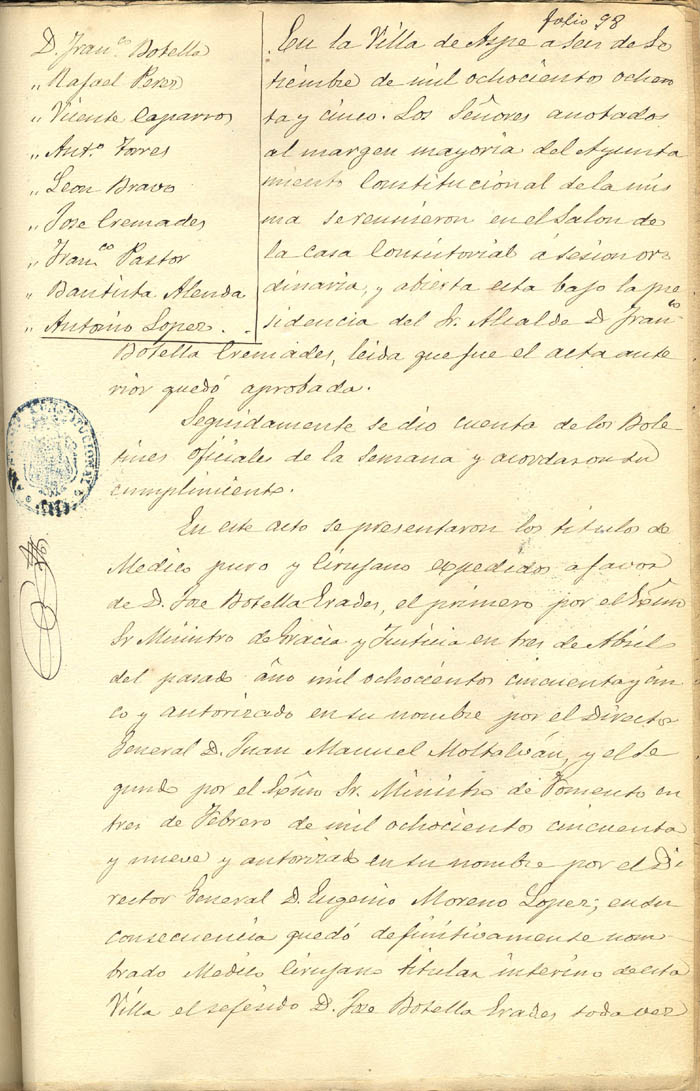 folio 98
D. Fran.co Botella
" Rafael Perez
" Vicente Caparros
" Ant.o Torres
" Leon Bravo
" Jose Cremades
" Fran.co Pastor
" Bautista Alenda
" Antonio Lopez
En la Villa de Aspe a seis de Se
tiembre de mil ochocientos ochen
ta y cinco. Los Señores anotados
al margen mayoria del Ayunta
miento Constitucional de la mis
ma se reunieron en el Salon de
la casa Consistorial á sesion or
dinaria, y abierta esta bajo la pre
sidencia del Sr. Alcalde D. Fran.co
Botella Cremades, leida que fue el acta ante
rior quedó aprobada.
Seguidamente se dio cuenta de los Bole
tines oficiales de la Semana y acordaron su
cumplimiento.
En este acto se presentaron los titulos de
Medico puro y Cirujano expedidos a favor
de D. Jose Botella Erades, el primero por el Exmo
Sr Ministro de Gracia y Justicia en tres de Abril
del pasado año mil ochocientos cincuenta y cin
co y autorizado en su nombre por el Director
General D. Juan Manuel Moltalván, y el se
gundo por el Exmo Sr. Ministro de Fomento en
tres de Febrero de mil ochocientos cincuenta
y nueve y autorizado en su nombre por el Di
rector General D. Eugenio Moreno Lopez; en su
consecuencia quedó definitivamente nom-
brado Medico Cirujano titular interino de esta
Villa el referido D. Jose Botella Erades toda vez
CONSTITUCIONAL